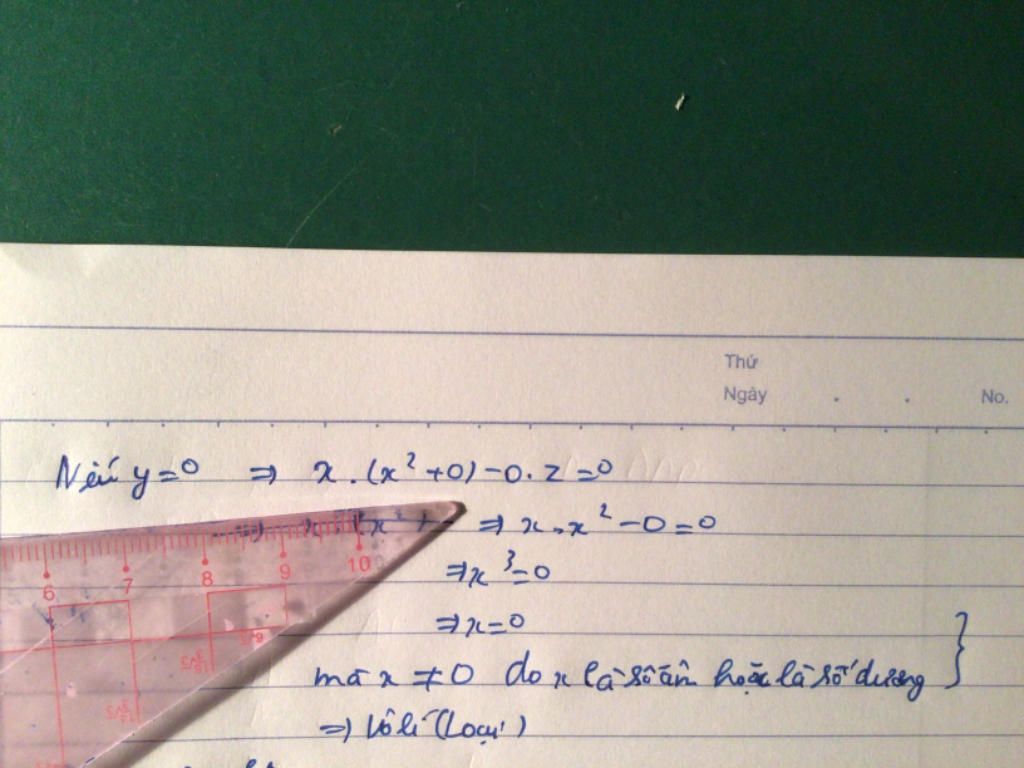 Thứ
Ngày . . No.
Nếu y=0 ⇒ x.(x²+0)-0.z=0
⇒ x.x²-0=0
⇒x³=0
⇒x=0
mà x ≠0 do x là số âm hoặc là số dương }
⇒ Vô lí (Loại)
6 7 8 9 10